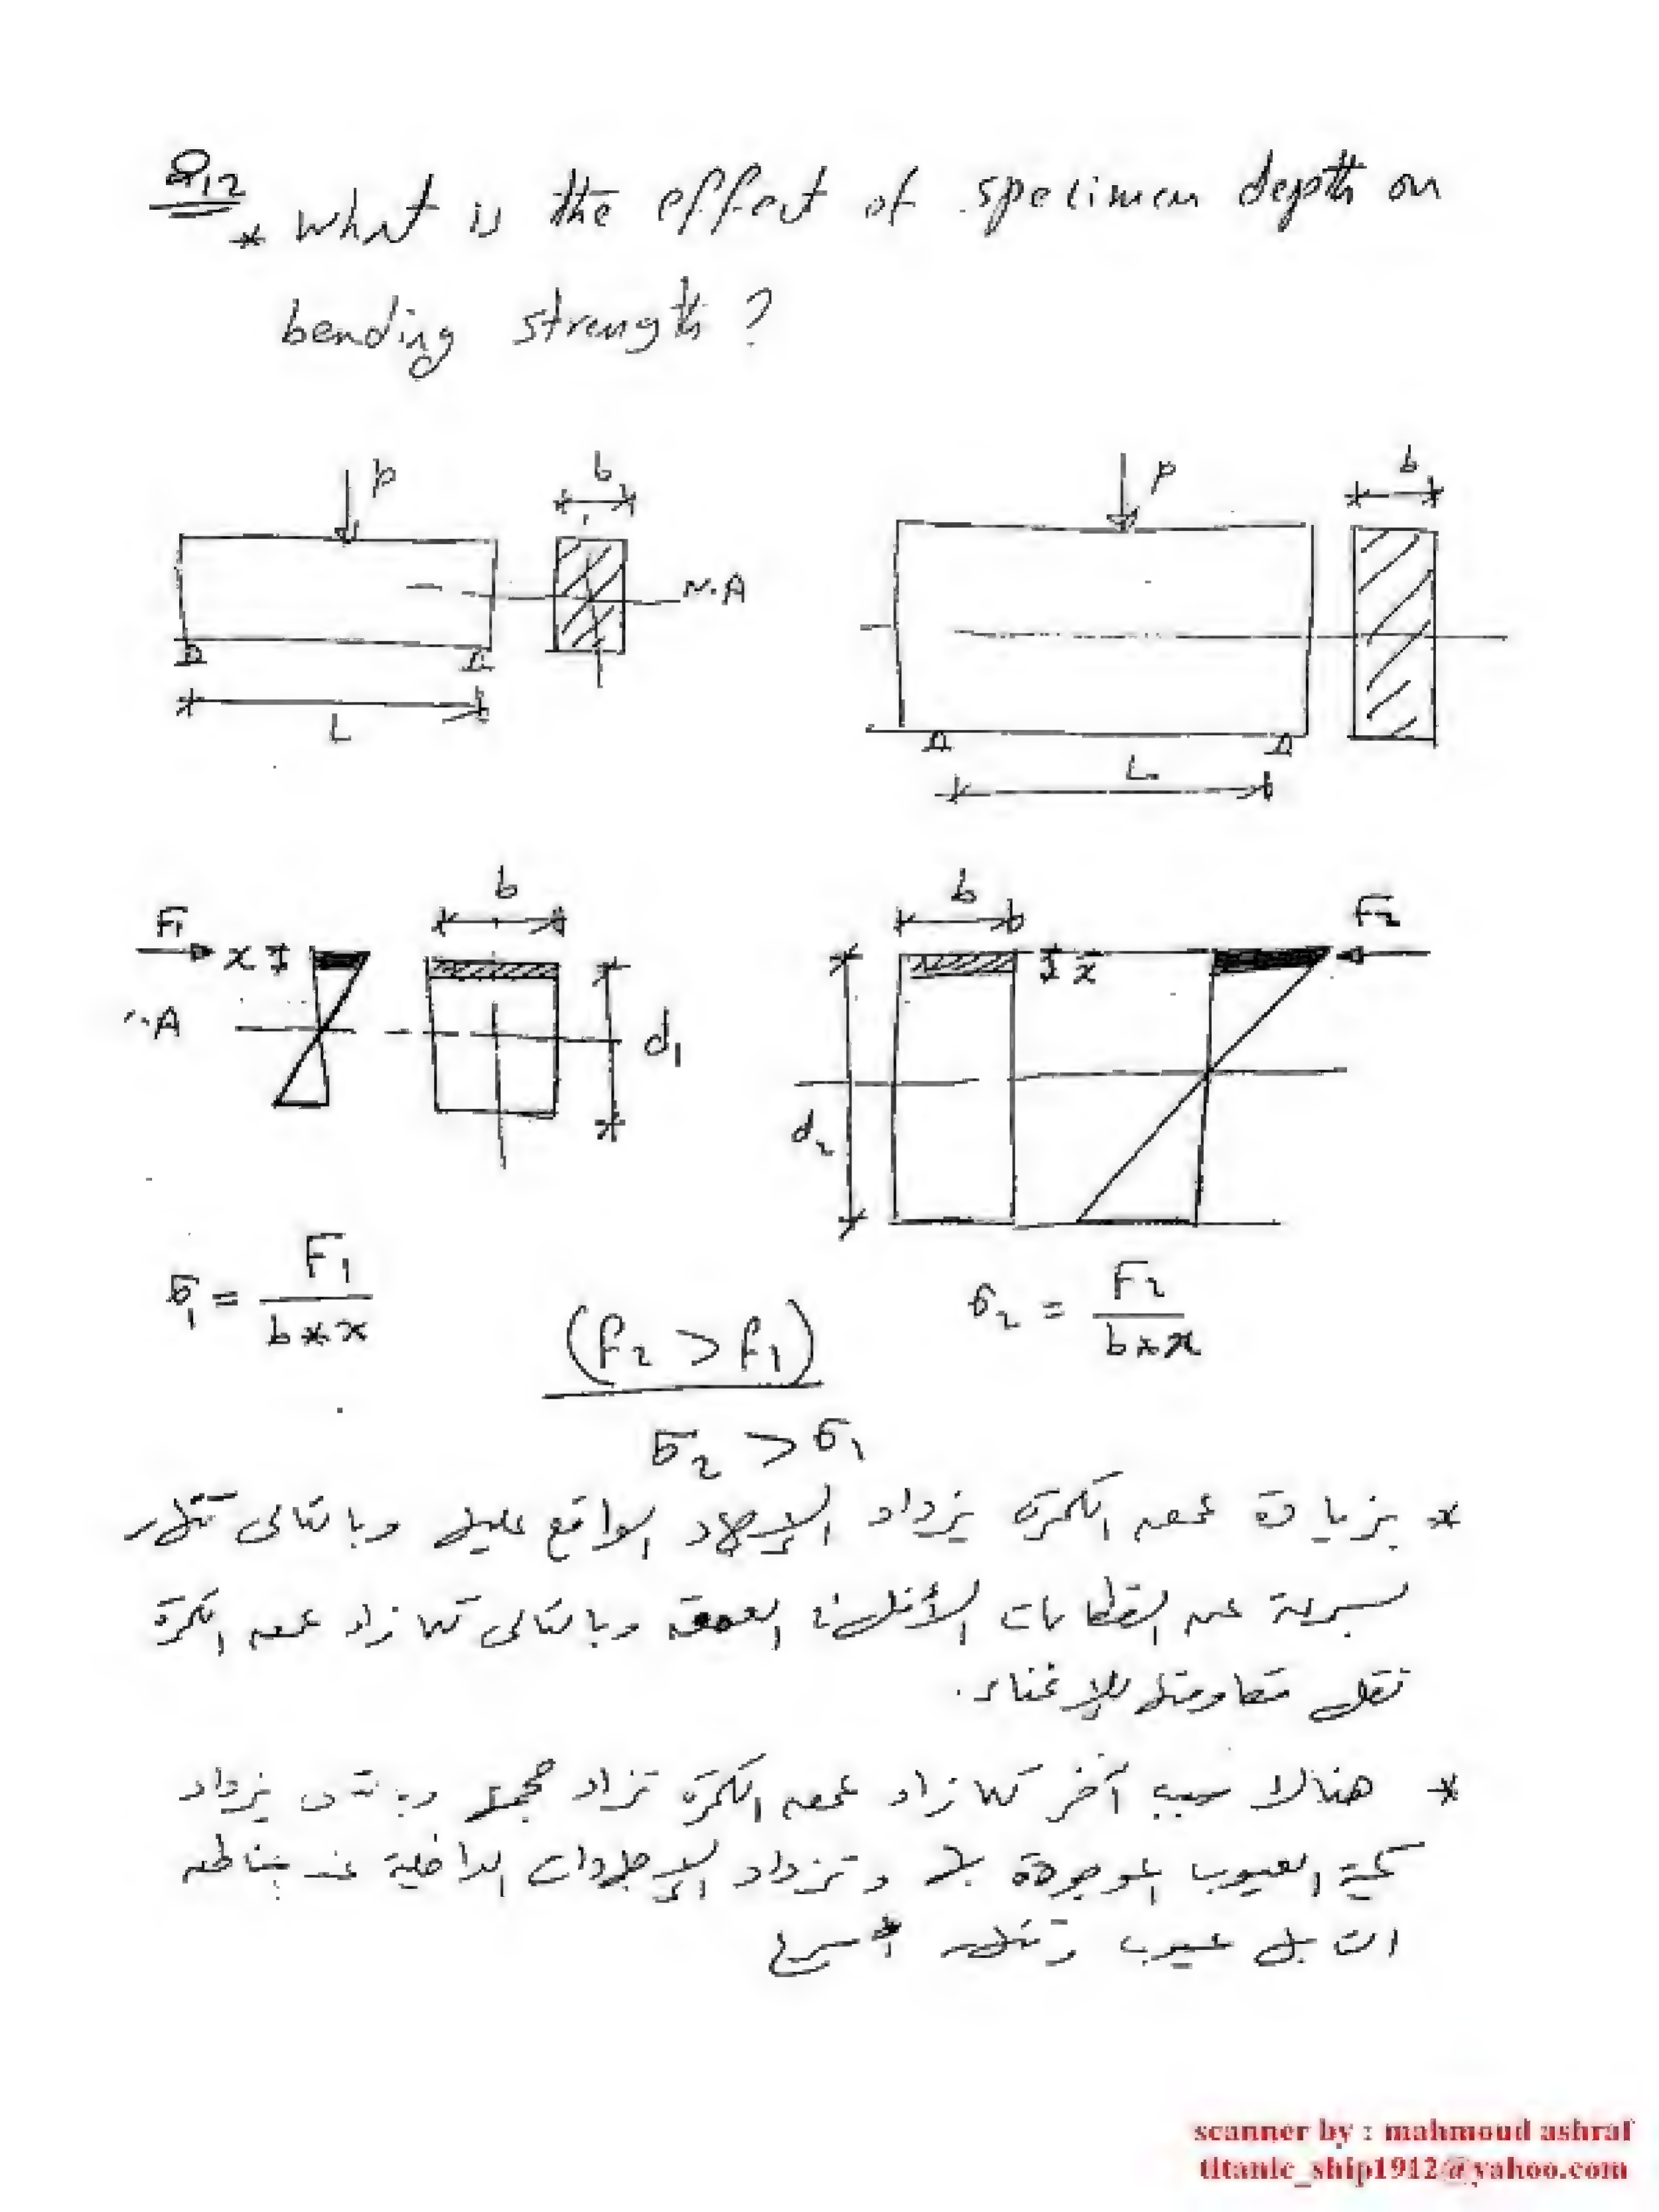 Q12
* What is the effect of specimen depth on
bending strength?
P
b
N.A
L
P
b
L
F1
x
b
N.A
d1
b
x
F2
d2
σ1 = F1 / b*x
(F2 > F1)
σ2 = F2 / b*x
σ2 > σ1
* بزيادة عمق الكمرة يزداد الإجهاد الواقع عليها وبالتالى تنهار
بسرعة عن القطاعات الأقل فى العمق وبالتالى كلما زاد عمق الكمرة
تقل مقاومتها للإنحناء.
* هناك سبب آخر كلما زاد عمق الكمرة تزداد حجمها يزداد
كمية العيوب الموجودة بها وتزداد الإجهادات الداخلية عند مناطق
التى بها عيوب وتنهار أسرع
scanner by : mahmoud ashraf
titanic_ship1912@yahoo.com